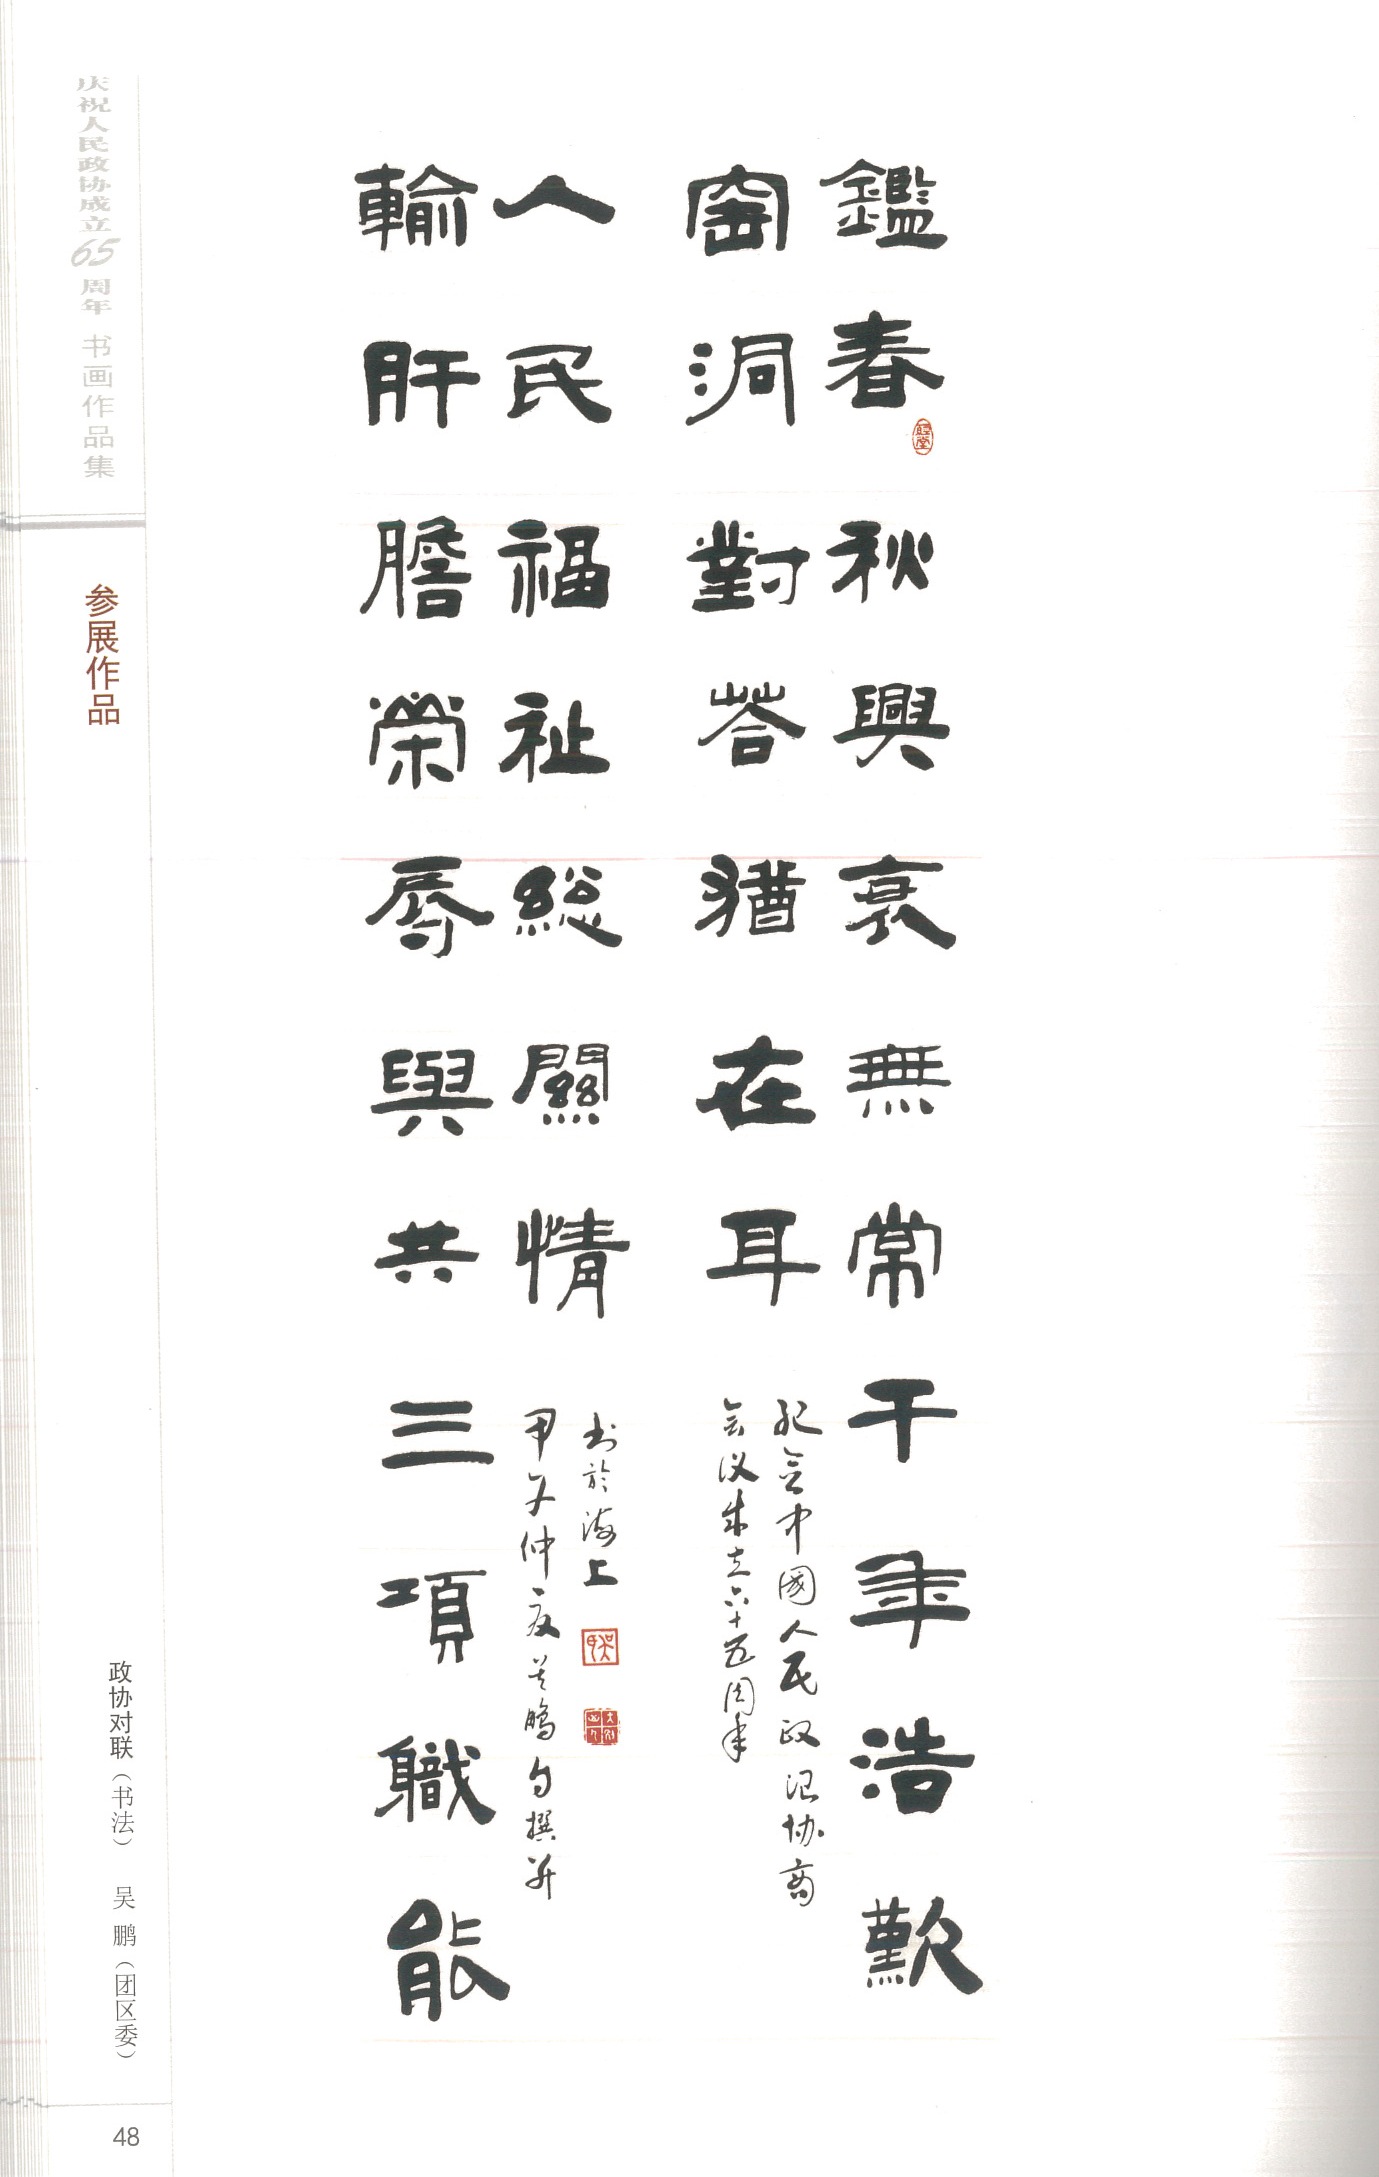 鑑春秋興衰無常千年浩歎
窑洞對荅猶在耳
紀念中國人民政治协商
会议成立六十五周年
輸肝膽榮辱與共三項職能
人民福祉総關情
甲午仲夏吴鹏句撰并
书於海上
庆祝人民政协成立65周年 书画作品集
参展作品
政协对联（书法） 吴 鹏（团区委）
48